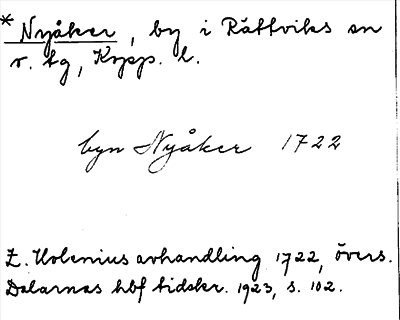 * Nyåker, by i Rättviks sn
r. tg, Kopp. l.
byn Nyåker 1722
Z. Holenius avhandling 1722, övers.
Dalarnas hbf tidskr. 1923, s. 102.